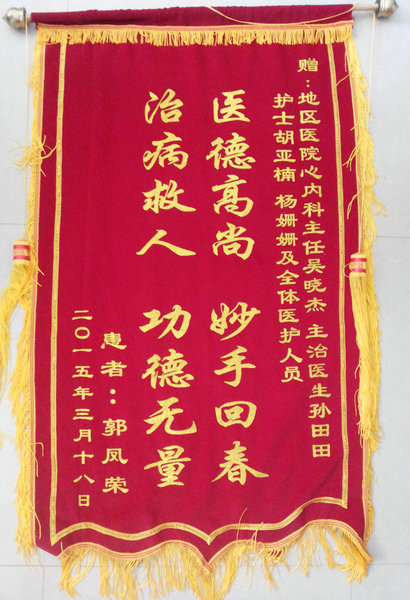 赠：地区医院心内科主任吴晓杰 主治医生孙田田
护士胡亚楠 杨姗姗及全体医护人员
医德高尚 妙手回春
治病救人 功德无量
患者：郭凤荣
二〇一五年三月十八日